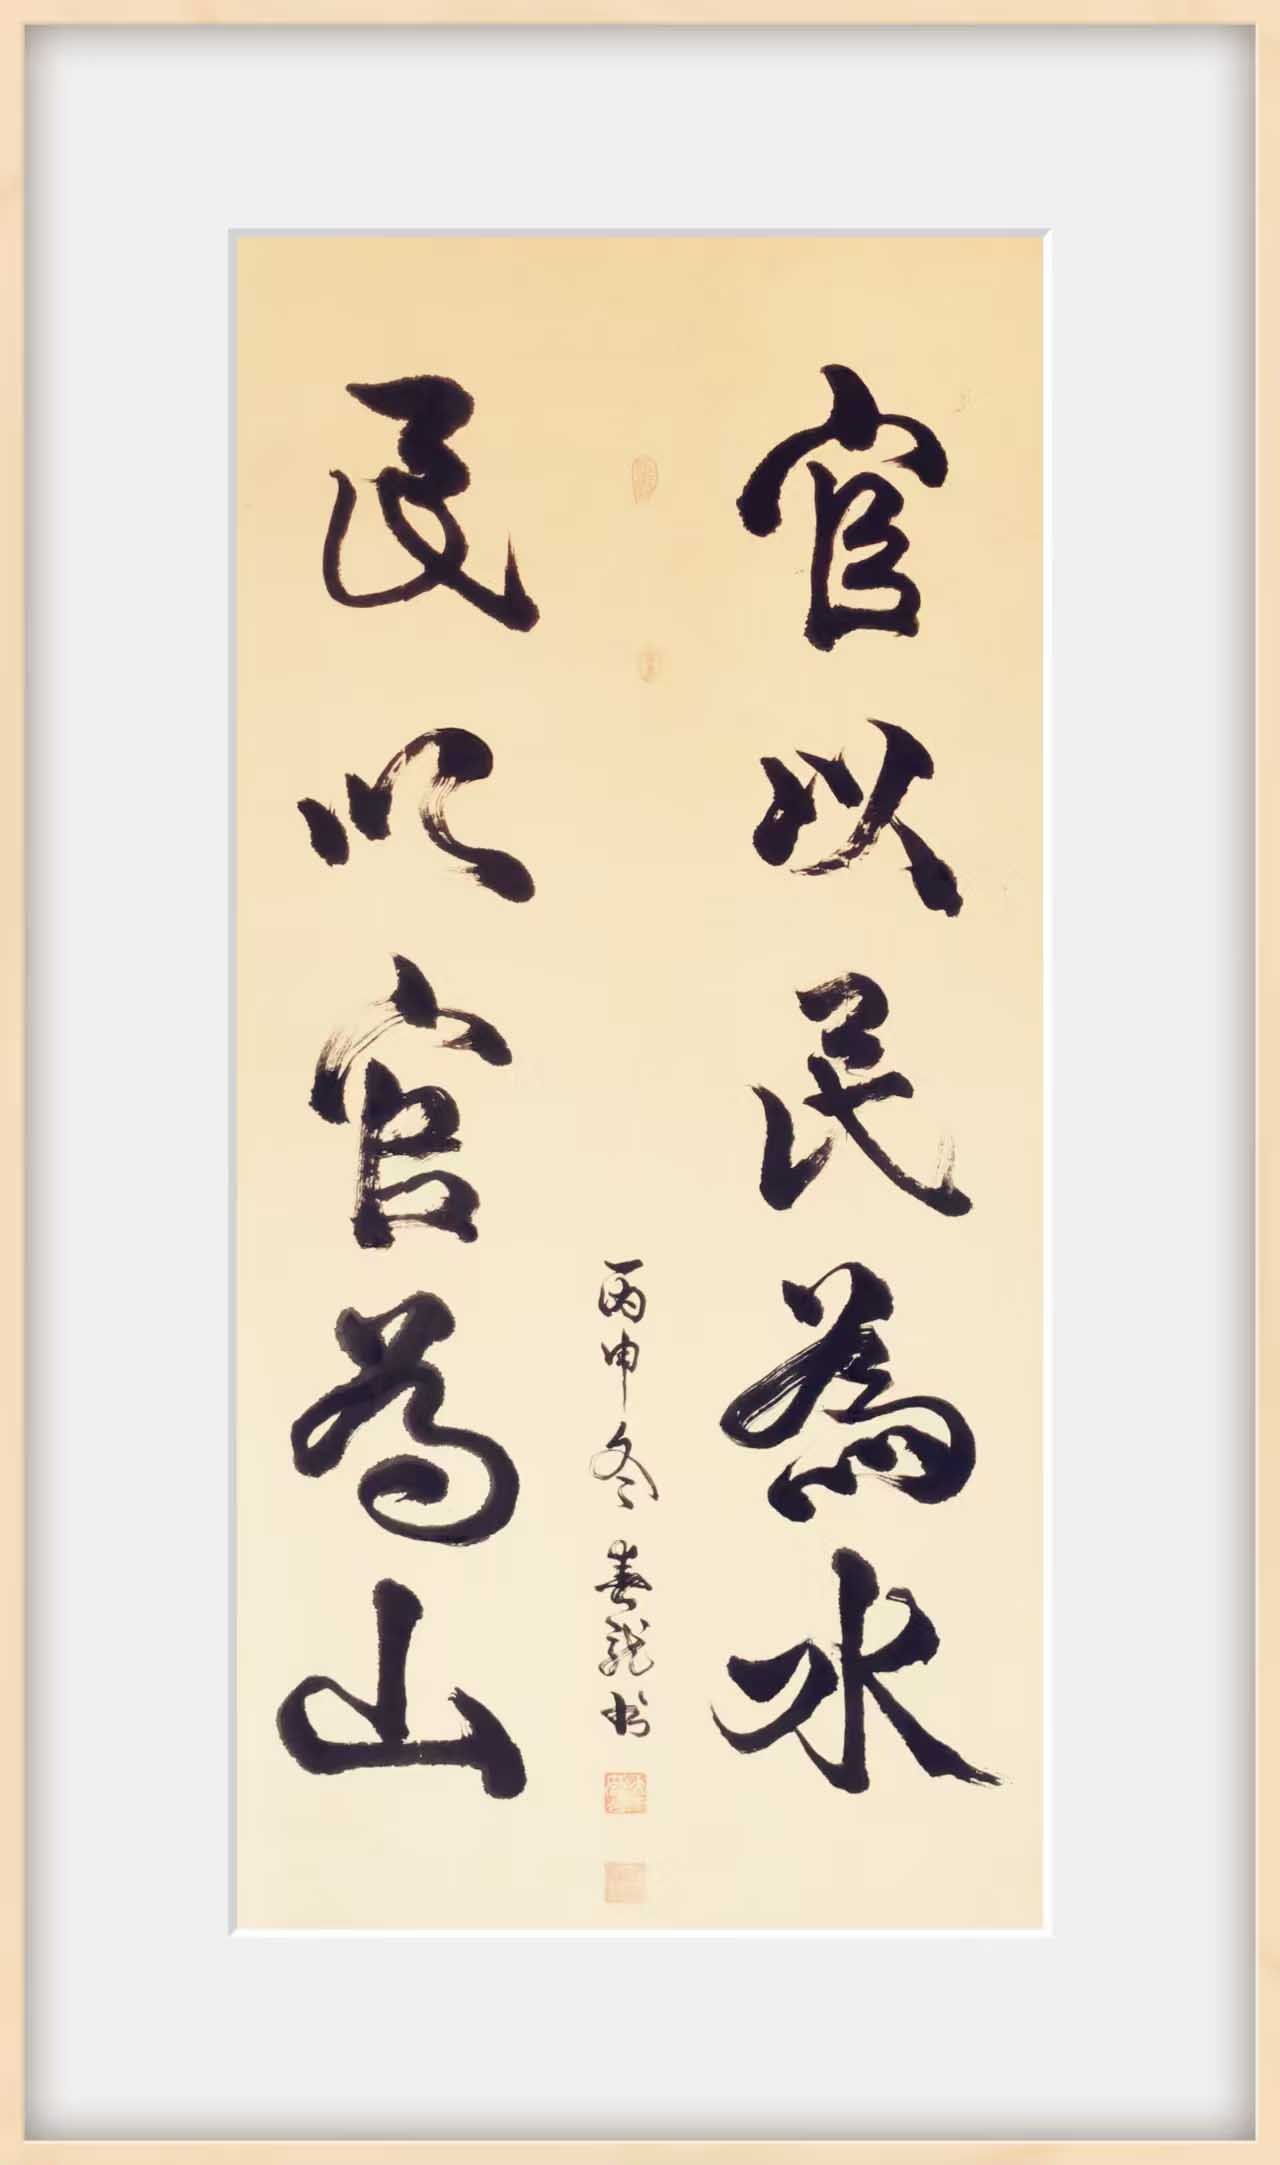 官以民為水
民以官為山
丙申冬春龍书